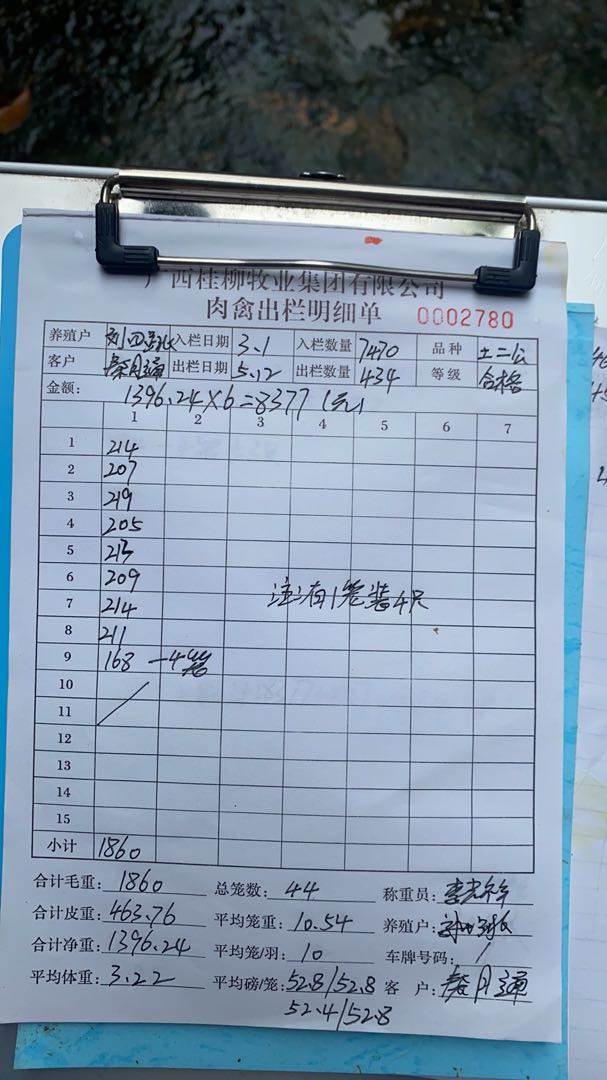 广西桂柳牧业集团有限公司
肉禽出栏明细单 0002780
养殖户 入栏日期 3.1 入栏数量 7470 品种 土二公
客户 秦月通 出栏日期 5.12 出栏数量 434 等级 合格
金额: 1396.24×6=8377(元)
1 2 3 4 5 6 7
1 214
2 207
3 219
4 205
5 213
6 209
7 214 注:有1笼装4只
8 211
9 168 一4笼
10
11
12
13
14
15
小计 1860
合计毛重: 1860 总笼数: 44 称重员:
合计皮重: 463.76 平均笼重: 10.54 养殖户:
合计净重: 1396.24 平均笼/羽: 10 车牌号码: /
平均体重: 3.22 平均磅/笼: 52.8/52.8 客户: 秦月通
52.4/52.8